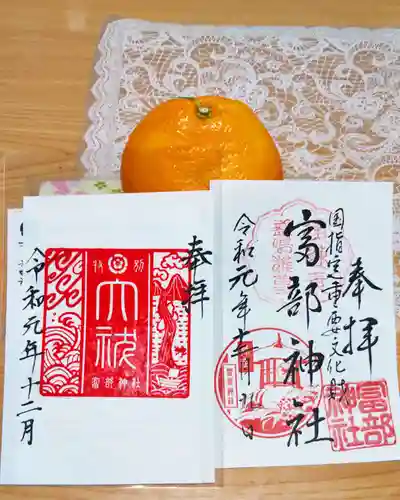 奉拝
国指定重要文化財
富部神社
令和元年十二月
富部
神社
富部神社
奉拝
特別
大祓
富部神社
令和元年十二月